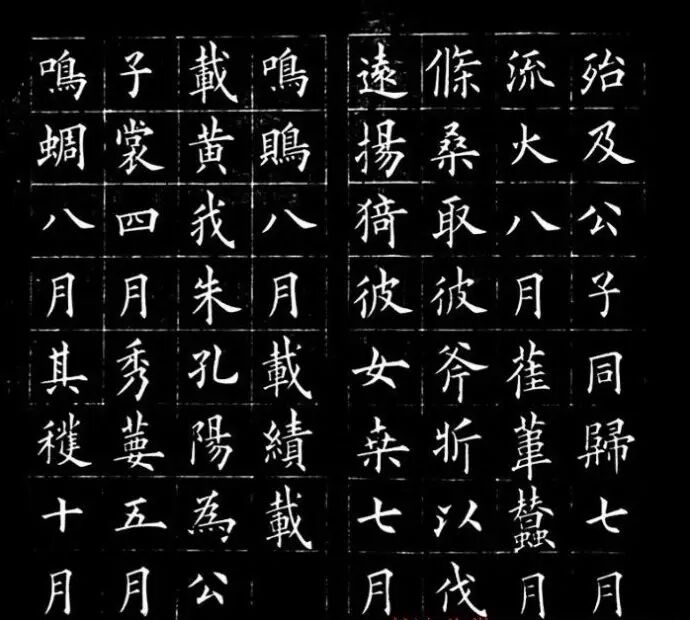 殆及公子同歸七月
流火八月萑葦蠶月
條桑取彼斧斨以伐
遠揚猗彼女桒七月
鳴鵙八月載績載
載黃我朱孔陽為公
子裳四月秀葽五月
鳴蜩八月其穫十月